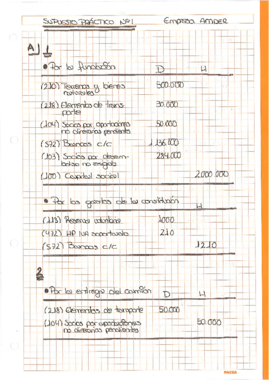 SUPUESTO PRÁCTICO Nº1 Empresa AMDER
A) 1
• Por la fundación D H
(210) Terrenos y bienes naturales 500.000
(218) Elementos de transporte 30.000
(104) Socios por aportaciones no dinerarias pendientes 50.000
(572) Bancos c/c 1.136.000
(103) Socios por desembolso no exigido 284.000
(100) Capital social 2.000.000
• Por los gastos de la constitución H
(113) Reservas voluntarias 1000
(472) HP IVA soportado 210
(572) Bancos c/c 1210
2
• Por la entrega del camión D H
(218) Elementos de transporte 50.000
(104) Socios por aportaciones no dinerarias pendientes 50.000